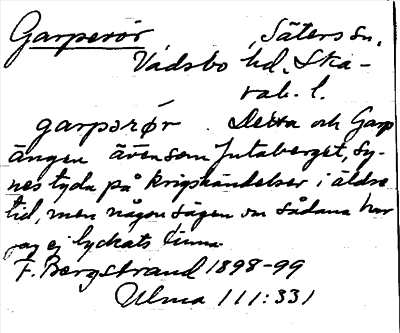 Garperör Säters sn,
Vadsbo hd. Ska-
rab. l.
garpərør. Detta och Garp
ängen ävensom Jutaberget, sy-
nes tyda på krigshändelser i äldre
tid, men någon sägen om sådana har
jag ej lyckats finna
F. Bergstrand 1898-99
Ulma 111:331